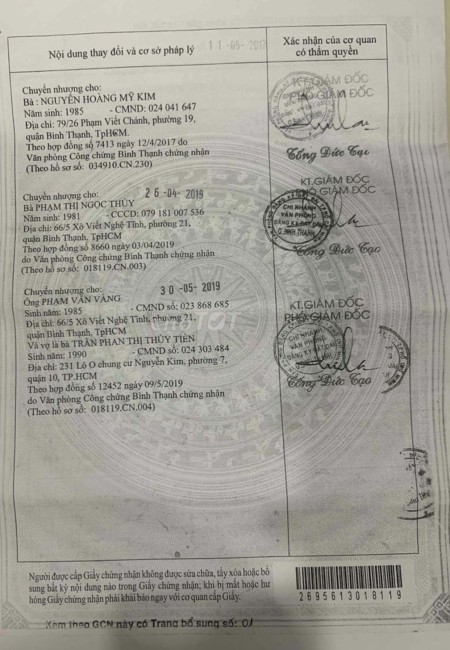 Nội dung thay đổi và cơ sở pháp lý
Xác nhận của cơ quan
có thẩm quyền
11-05-2017
Chuyển nhượng cho:
Bà : NGUYỄN HOÀNG MỸ KIM
Năm sinh: 1985 - CMND: 024 041 647
Địa chỉ: 79/26 Phạm Viết Chánh, phường 19,
quận Bình Thạnh, TpHCM.
Theo hợp đồng số 7413 ngày 12/4/2017 do
Văn phòng Công chứng Bình Thạnh chứng nhận
(Theo hồ sơ số: 034910.CN.230)
KT.GIÁM ĐỐC
PHÓ GIÁM ĐỐC
Tống Đức Tạo
Chuyển nhượng cho: 26-04-2019
Bà PHẠM THỊ NGỌC THỦY
Năm sinh: 1981 - CCCD: 079 181 007 536
Địa chỉ: 66/5 Xô Viết Nghệ Tĩnh, phường 21,
quận Bình Thạnh, TpHCM
Theo hợp đồng số 8660 ngày 03/04/2019
do Văn phòng Công chứng Bình Thạnh chứng nhận
(Theo hồ sơ số: 018119.CN.003)
KT.GIÁM ĐỐC
PHÓ GIÁM ĐỐC
CHI NHÁNH
VĂN PHÒNG
ĐĂNG KÝ ĐẤT ĐAI
Q.BÌNH THẠNH
Tống Đức Tạo
Chuyển nhượng cho: 30-05-2019
Ông PHẠM VĂN VÀNG
Sinh năm: 1985 - CMND số: 023 868 685
Địa chỉ: 66/5 Xô Viết Nghệ Tĩnh, phường 21,
quận Bình Thạnh, TpHCM
Và vợ là bà TRẦN PHAN THỊ THỦY TIÊN
Sinh năm: 1990 - CMND số: 024 303 484
Địa chỉ: 231 Lô O chung cư Nguyễn Kim, phường 7,
quận 10, TP.HCM
Theo hợp đồng số 12452 ngày 09/5/2019
do Văn phòng Công chứng Bình Thạnh chứng nhận
(Theo hồ sơ số: 018119.CN.004)
KT.GIÁM ĐỐC
PHÓ GIÁM ĐỐC
CHI NHÁNH
VĂN PHÒNG
ĐĂNG KÝ ĐẤT ĐAI
Tống Đức Tạo
Người được cấp Giấy chứng nhận không được sửa chữa, tẩy xóa hoặc bổ
sung bất kỳ nội dung nào trong Giấy chứng nhận; khi bị mất hoặc hư
hỏng Giấy chứng nhận phải khai báo ngay với cơ quan cấp Giấy.
2695613018119
Xem theo GCN này có Trang bổ sung số: 01